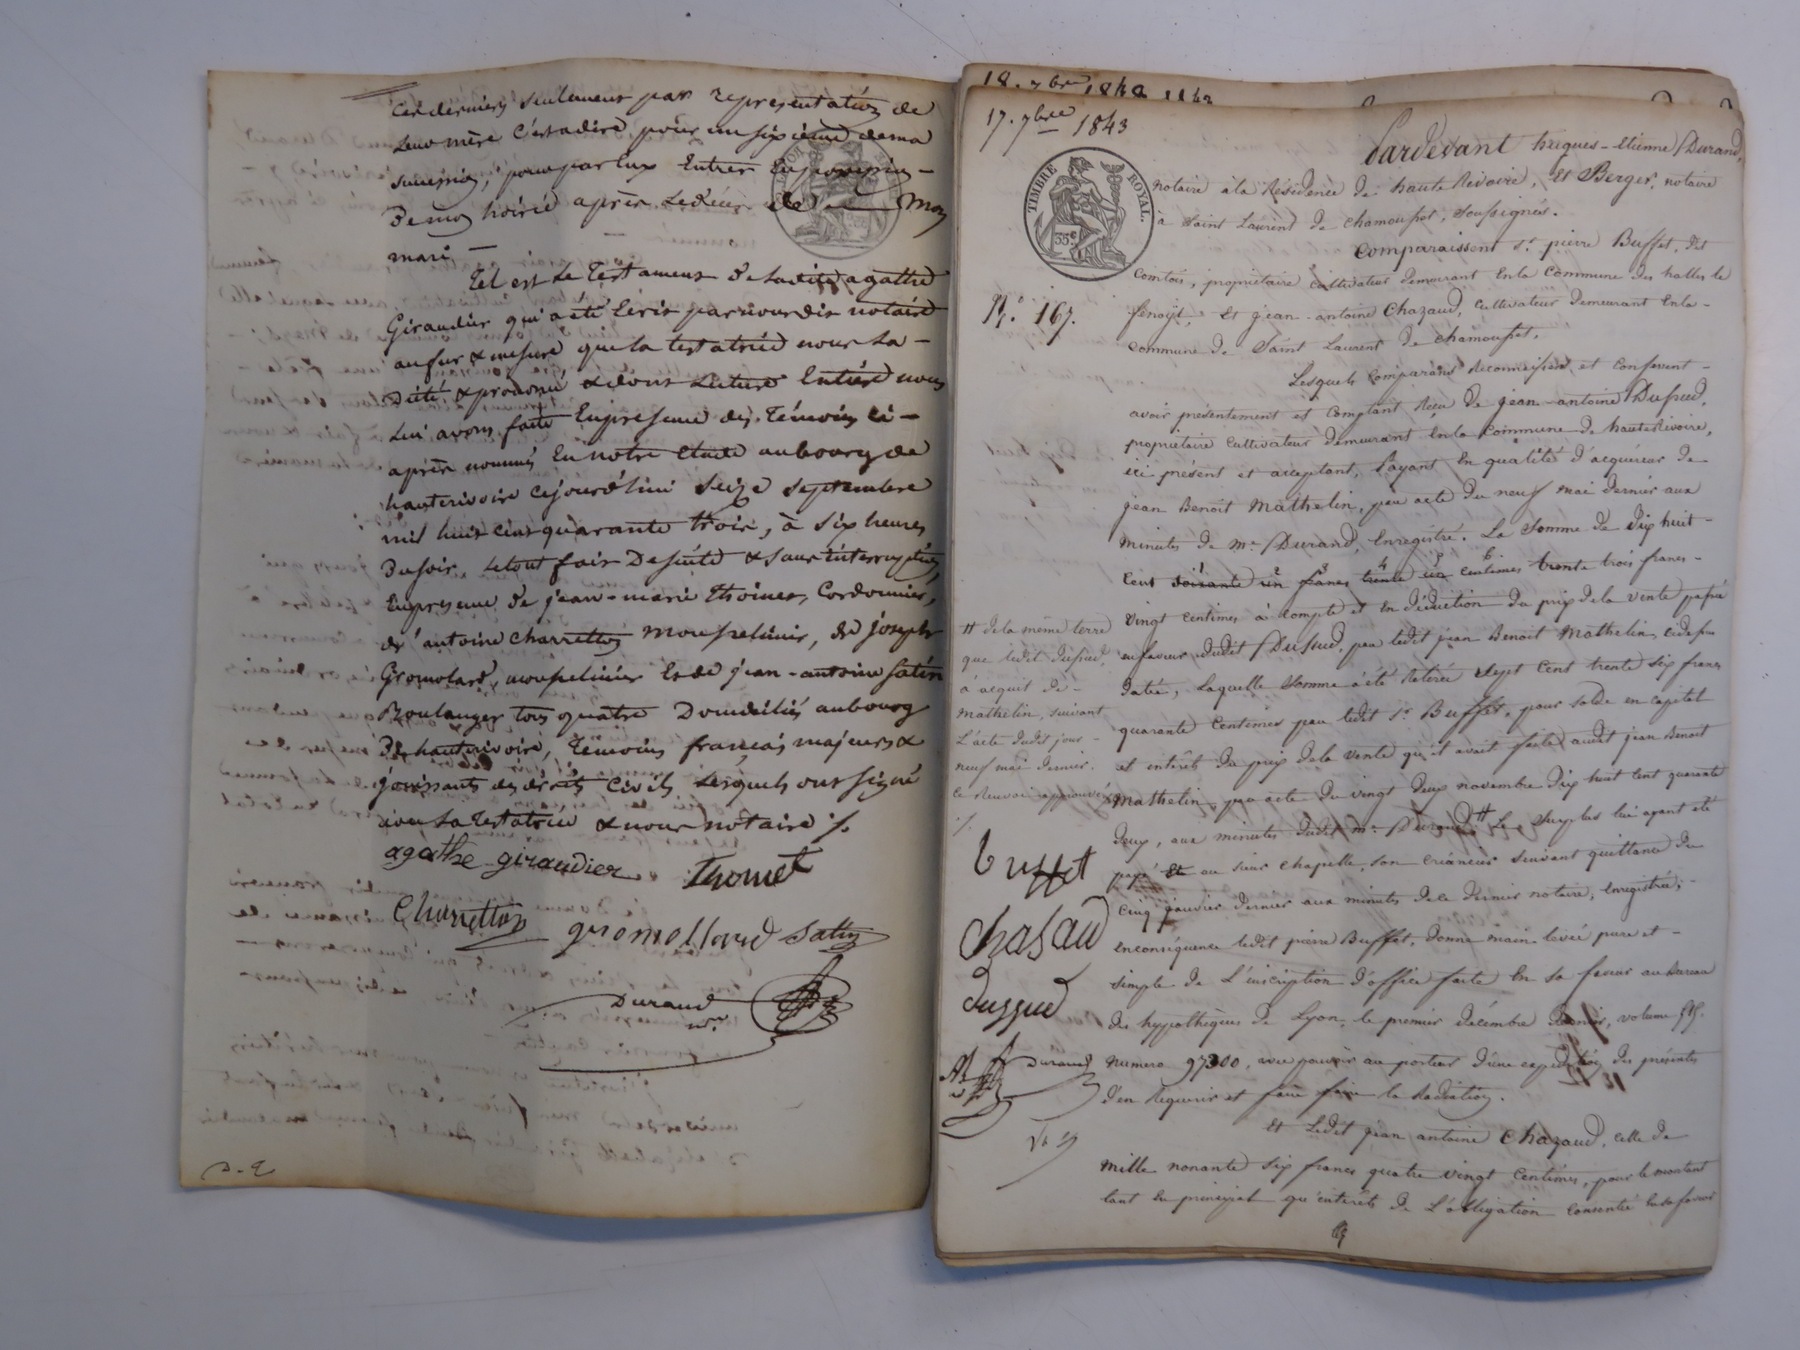 ces derniers seulement par representation de
leur mère c'est a dire pour un sixième de ma
succession, pour par eux entrer en possession
de mon hoirie après le décès de mon
mari
Tel est le testament de ladite agathe
Giraudier qui a été écrit par nous dit notaire
au fur & mesure que la testatrice nous l'a
dicté & prononcé & dont lecture entière nous
lui avons faite en presence des témoins ci-
après nommés en notre etude au bourg de
hauterivoire cejourd'hui seize septembre
mil huit cent quarante trois, à six heures
du soir, le tout fait de suite & sans interruption
en presence de jean-marie Thoinet, Cordonnier,
d'antoine charretton mousselinier, de joseph
Gromolard, mousselinier et de jean-antoine satin
Boulanger tous quatre domiciliés au bourg
de hauterivoire, témoins français majeurs &
jouissants des droits civils lesquels ont signé
avec la testatrice & nous notaire ./.
agathe giraudier Thoinet
Charretton gromollard satin
Durand
nre
18. 7bre 1843 1843
17. 7bre 1843
TIMBRE ROYAL.
35c
Pardevant hugues-etienne Durand,
notaire à la Résidence de haute Rivoire, et Berger, notaire
à Saint Laurent de chamousset, soussignés.
Comparaissent sr. pierre Buffet, dit
comtois, propriétaire cultivateur demeurant en la commune des halles le
fenoÿl, et jean-antoine Chazaud, cultivateur demeurant en la
commune de Saint Laurent de chamousset,
167.
Lesquels comparans reconnaissent et confessent
avoir présentement et comptant reçu de jean-antoine Dussud,
propriétaire cultivateur demeurant en la commune de hauteRivoire,
ici présent et acceptant, payant en qualité d'acquéreur de
jean Benoit Mathelin, par acte du neuf mai dernier aux
minutes de me. Durand, enregistré. La somme de dix huit
cent soixante un francs trente centimes trente trois francs
vingt centimes à compte et en déduction du prix de la vente passée
en faveur dudit Dussud, par ledit jean Benoit Mathelin, cidessus
datée, laquelle somme a été retirée sept cent trente six francs
quarante centimes par ledit sr. Buffet, pour solde en capital
et intérêts du prix de la vente qu'il avait faite audit jean Benoit
Mathelin, par acte du vingt deux novembre dix huit cent quarante
deux, aux minutes dudit me. Durand # Le surplus lui ayant été
payé au sieur chapelle, son créancier suivant quittance du
cinq janvier dernier aux minutes de ce dernier notaire, enregistrée,
en conséquence ledit pierre Buffet, donne main-levée pure et
simple de l'inscription d'office faite en sa faveur au bureau
des hypothèques de Lyon, le premier décembre dernier, volume
numero 97300, avec pouvoir au porteur d'une expedition des présentes
d'en requérir et faire faire la Radiation.
Et ledit jean antoine Chazaud, celle de
mille nonante six francs quatre vingt centimes, pour le montant
tant en principal qu'intérêts de l'obligation consentie en sa faveur
# de la même terre
que ledit dussud,
a acquit de
Mathelin, suivant
L'acte dudit jour
neuf mai dernier.
ce renvoi approuvé
./.
buffet
chasaud
dussud
Durand